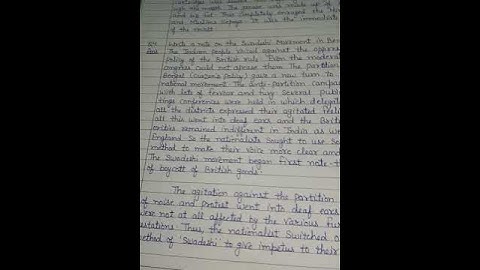 and his
and Muslims Sepoys. It was the immediate
of the revolt
Write a note on the Swadeshi Movement in Ben
Ans The Indian people stirred against the oppress
Policy of the British rule. Even the moderate
congress could not appease them. The partition
Bengal (Curzon's Policy) gave a new turn to
national movement. The anti-partition campaig
with lots of fervour and fury. Several publi
tings conferences were held in which delegat
all the districts expressed their agitated feeli
all this went into deaf ears and the Brit
orities remained indifferent in India as we
England. So the nationalists sought to use
method to make their voice more clear an
The Swadeshi movement began first note-
of boycott of British goods.
The agitation against the partition
of noise and protest went into deaf ears
were not at all affected by the various
estations. Thus, the nationalist Switched
ethod of 'Swadeshi' to give impetus to their